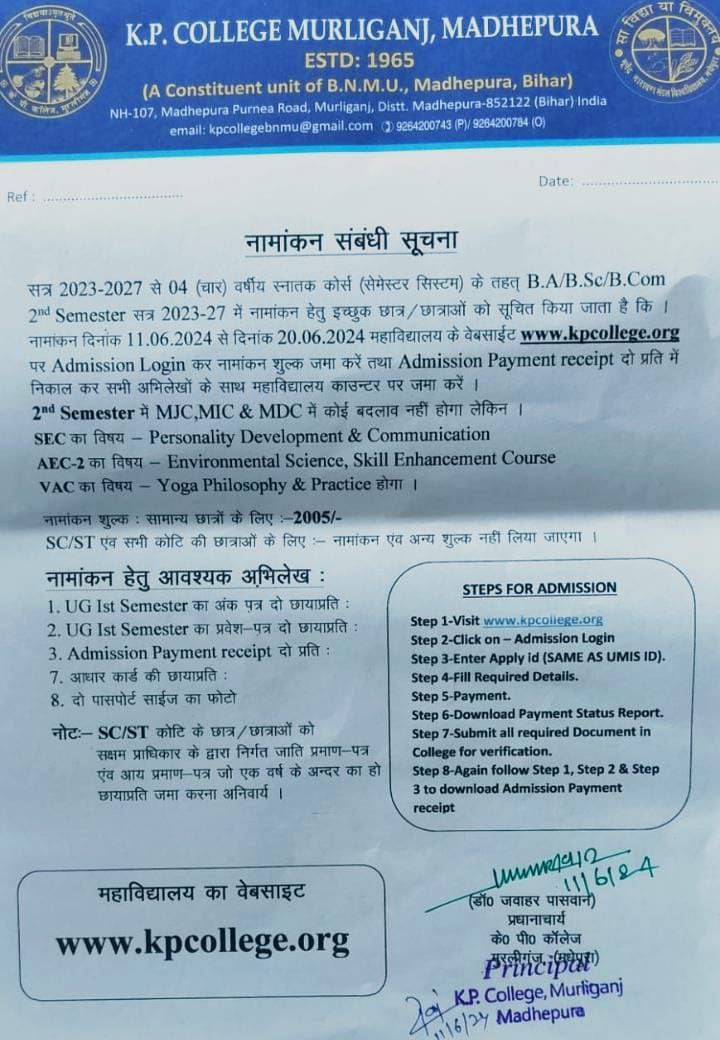 K.P. COLLEGE MURLIGANJ, MADHEPURA
ESTD: 1965
(A Constituent unit of B.N.M.U., Madhepura, Bihar)
NH-107, Madhepura Purnea Road, Murliganj, Distt. Madhepura-852122 (Bihar) India
email: kpcollegebnmu@gmail.com ✆ 9264200743 (P)/ 9264200784 (O)
Ref : ....................................
Date: ..................................
नामांकन संबंधी सूचना
सत्र 2023-2027 से 04 (चार) वर्षीय स्नातक कोर्स (सेमेस्टर सिस्टम) के तहत् B.A/B.Sc/B.Com
2nd Semester सत्र 2023-27 में नामांकन हेतु इच्छुक छात्र/छात्राओं को सूचित किया जाता है कि ।
नामांकन दिनांक 11.06.2024 से दिनांक 20.06.2024 महाविद्यालय के वेबसाईट www.kpcollege.org
पर Admission Login कर नामांकन शुल्क जमा करें तथा Admission Payment receipt दो प्रति में
निकाल कर सभी अभिलेखों के साथ महाविद्यालय काउन्टर पर जमा करें ।
2nd Semester में MJC,MIC & MDC में कोई बदलाव नहीं होगा लेकिन ।
SEC का विषय – Personality Development & Communication
AEC-2 का विषय – Environmental Science, Skill Enhancement Course
VAC का विषय – Yoga Philosophy & Practice होगा ।
नामांकन शुल्क : सामान्य छात्रों के लिए :–2005/-
SC/ST एंव सभी कोटि की छात्राओं के लिए :– नामांकन एंव अन्य शुल्क नहीं लिया जाएगा ।
नामांकन हेतु आवश्यक अभिलेख :
1. UG Ist Semester का अंक पत्र दो छायाप्रति :
2. UG Ist Semester का प्रवेश–पत्र दो छायाप्रति :
3. Admission Payment receipt दो प्रति :
7. आधार कार्ड की छायाप्रति :
8. दो पासपोर्ट साईज का फोटो
नोट:– SC/ST कोटि के छात्र/छात्राओं को
सक्षम प्राधिकार के द्वारा निर्गत जाति प्रमाण–पत्र
एंव आय प्रमाण–पत्र जो एक वर्ष के अन्दर का हो
छायाप्रति जमा करना अनिवार्य ।
STEPS FOR ADMISSION
Step 1-Visit www.kpcollege.org
Step 2-Click on – Admission Login
Step 3-Enter Apply id (SAME AS UMIS ID).
Step 4-Fill Required Details.
Step 5-Payment.
Step 6-Download Payment Status Report.
Step 7-Submit all required Document in
College for verification.
Step 8-Again follow Step 1, Step 2 & Step
3 to download Admission Payment
receipt
महाविद्यालय का वेबसाइट
www.kpcollege.org
11/6/24
(डॉ० जवाहर पासवान)
प्रधानाचार्य
के० पी० कॉलेज
मुरलीगंज, (मधेपुरा)
Principal
K.P. College, Murliganj
Madhepura
11/6/24